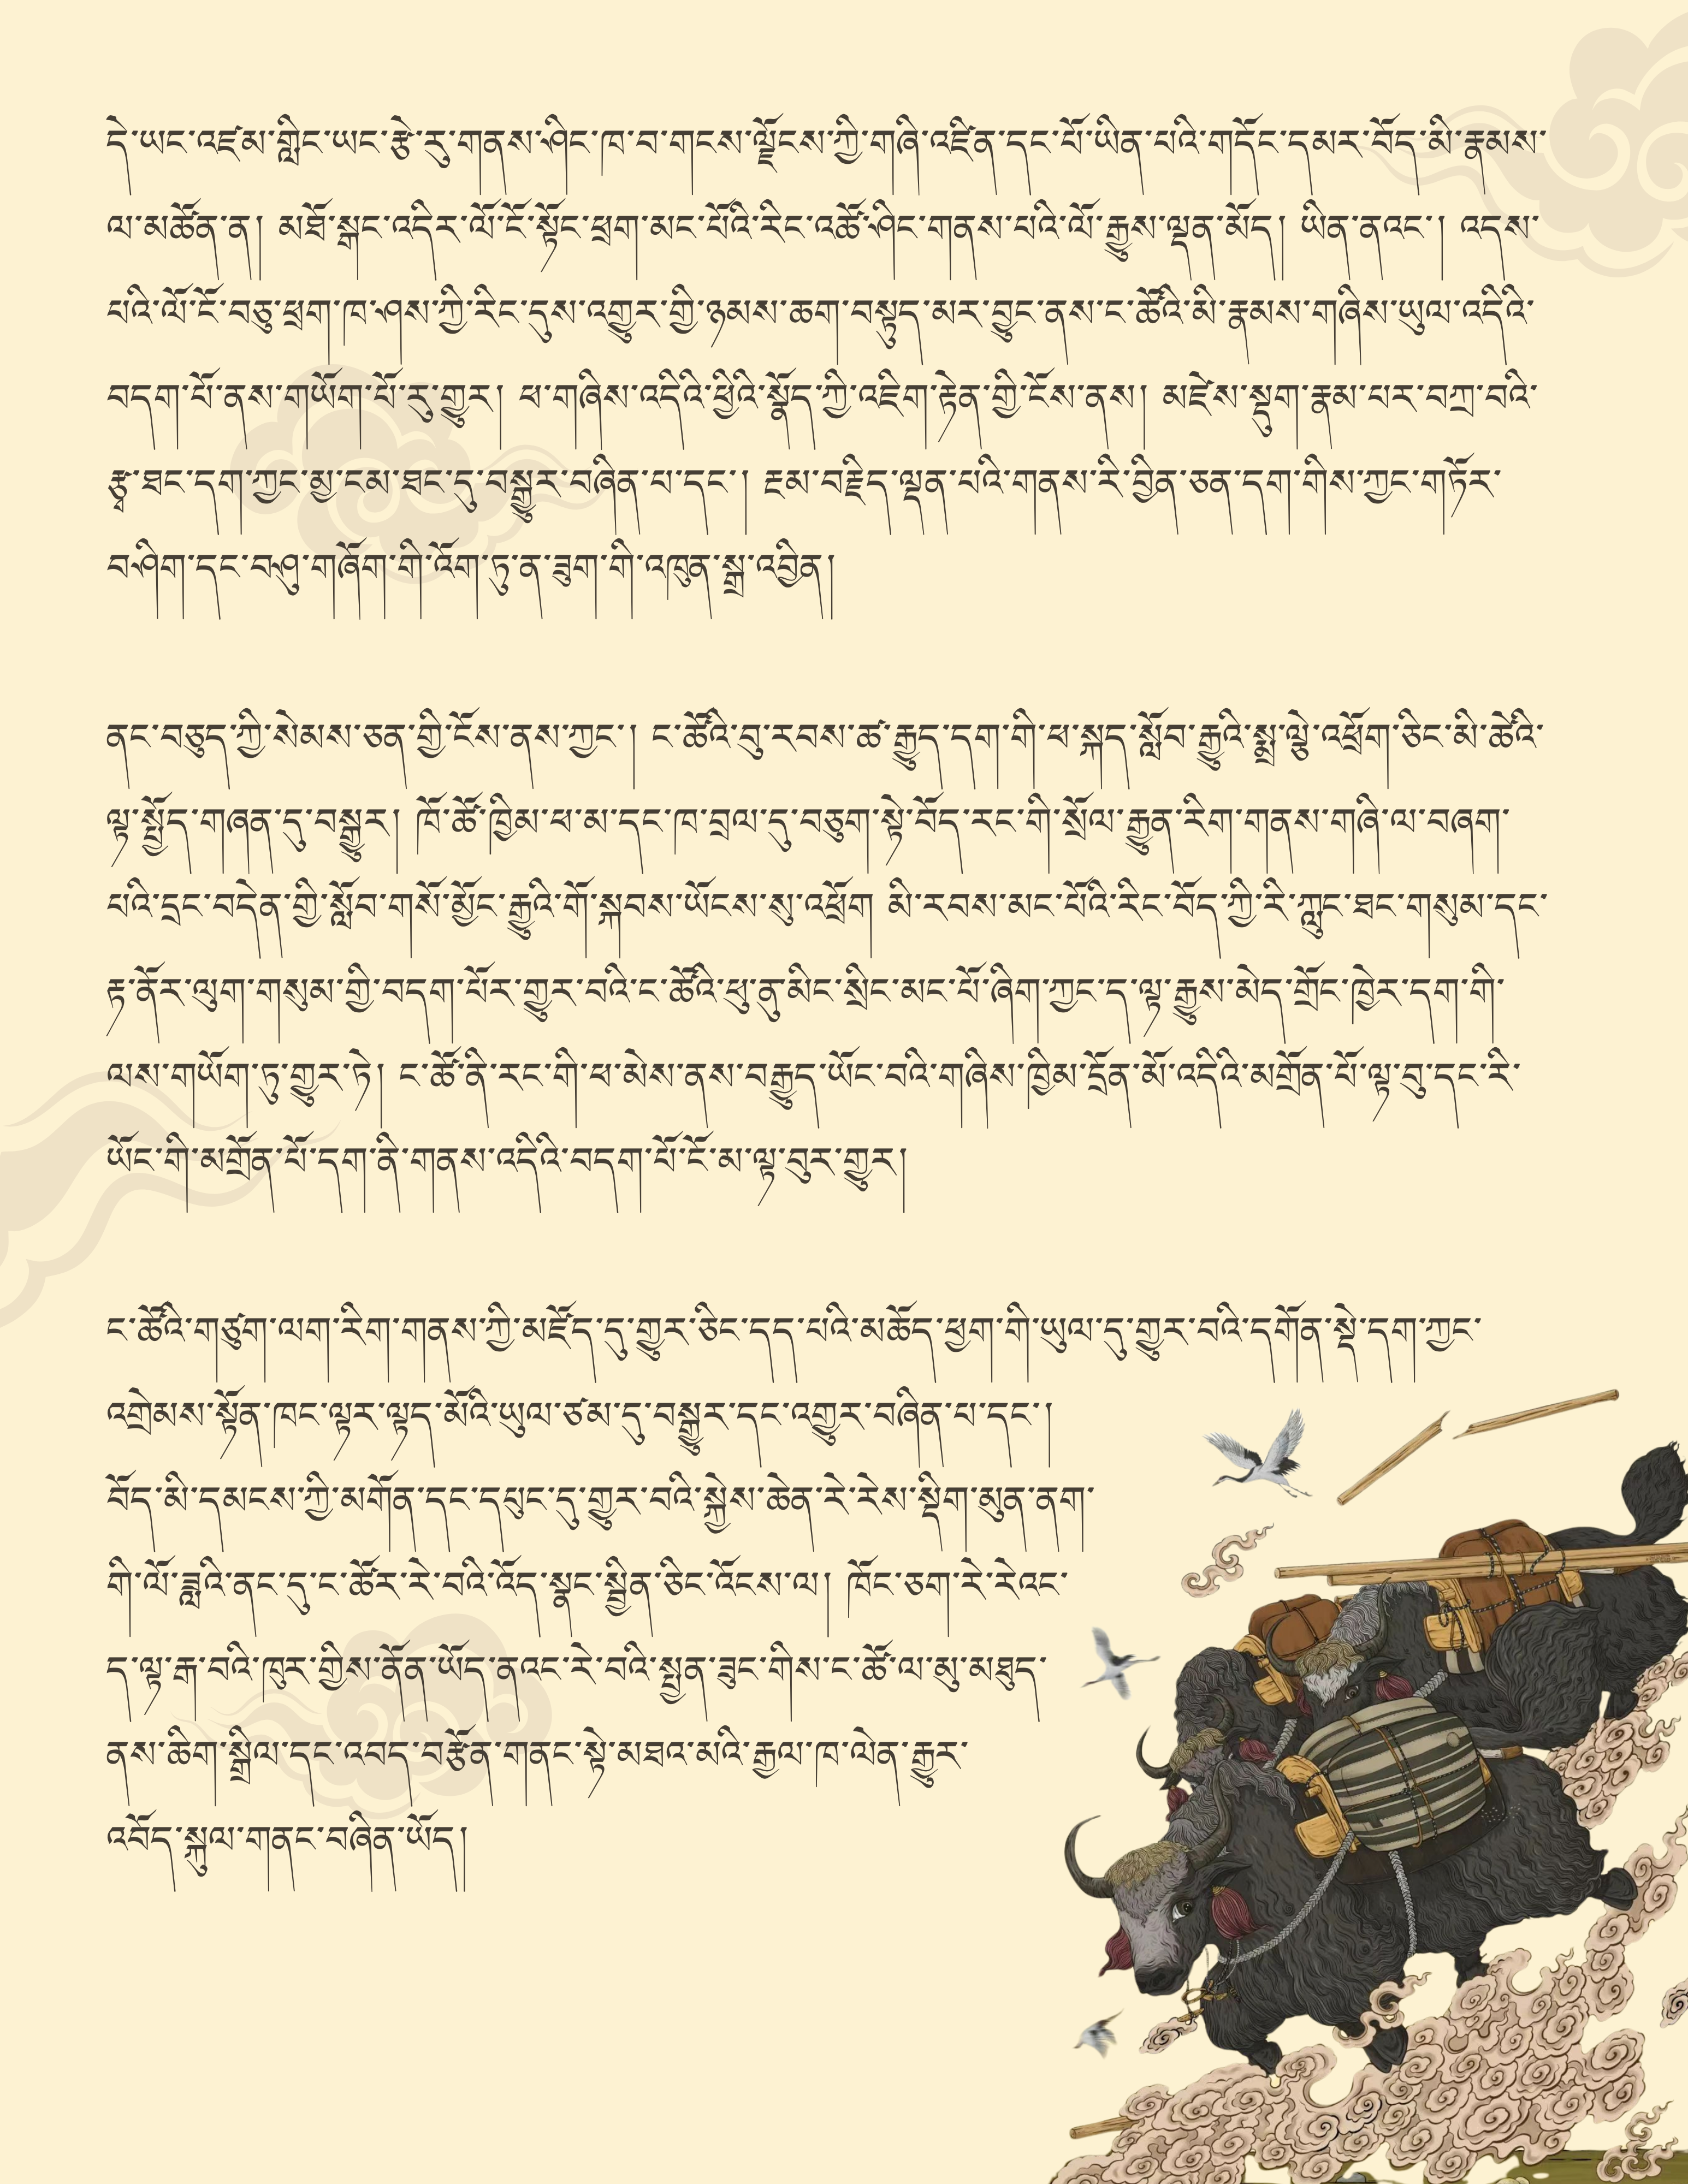 དེ་ཡང་འཛམ་གླིང་ཡང་རྩེ་རུ་གནས་ཤིང་ཁ་བ་གངས་ལྗོངས་ཀྱི་གཞི་འཛིན་དང་པོ་ཡིན་པའི་གདོང་དམར་བོད་མི་རྣམས་
ལ་མཚོན་ན། མཐོ་སྒང་འདིར་ལོ་ངོ་སྟོང་ཕྲག་མང་པོའི་རིང་འཚོ་ཤིང་གནས་པའི་ལོ་རྒྱུས་ལྡན་མོད། ཡིན་ནའང་། འདས་
པའི་ལོ་ངོ་བཅུ་ཕྲག་ཁ་ཤས་ཀྱི་རིང་དུས་འགྱུར་གྱི་ཉམས་ཆག་བསྟུད་མར་བྱུང་ནས་ང་ཚོའི་མི་རྣམས་གཞིས་ཡུལ་འདིའི་
བདག་པོ་ནས་གཡོག་པོ་རུ་གྱུར། ཕ་གཞིས་འདིའི་ཕྱིའི་སྣོད་ཀྱི་འཇིག་རྟེན་གྱི་ངོས་ནས། མཛེས་སྡུག་རྣམ་པར་བཀྲ་བའི་
རྩྭ་ཐང་དག་ཀྱང་མྱ་ངམ་ཐང་དུ་བསྒྱུར་བཞིན་པ་དང་། རྔམ་བརྗིད་ལྡན་པའི་གནས་རི་བྱིན་ཅན་དག་གིས་ཀྱང་གཏོར་
བཤིག་དང་བཤུ་གཞོག་གི་འོག་ཏུ་ན་ཟུག་གི་འཁུན་སྒྲ་འབྱིན།
ནང་བཅུད་ཀྱི་སེམས་ཅན་གྱི་ངོས་ནས་ཀྱང་། ང་ཚོའི་བུ་རབས་ཚ་རྒྱུད་དག་གི་ཕ་སྐད་སློབ་རྒྱུའི་སྨྲ་ལྕེ་འཕྲོག་ཅིང་མི་ཚེའི་
ལྟ་སྤྱོད་གཞན་དུ་བསྒྱུར། ཁོ་ཚོ་ཁྱིམ་ཕ་མ་དང་ཁ་བྲལ་དུ་བཅུག་སྟེ་བོད་རང་གི་སྲོལ་རྒྱུན་རིག་གནས་གཞི་ལ་བཞག་
པའི་དྲང་བདེན་གྱི་སློབ་གསོ་མྱོང་རྒྱུའི་གོ་སྐབས་ཡོངས་སུ་འཕྲོག མི་རབས་མང་པོའི་རིང་བོད་ཀྱི་རི་ཀླུང་ཐང་གསུམ་དང་
རྟ་ནོར་ལུག་གསུམ་གྱི་བདག་པོར་གྱུར་བའི་ང་ཚོའི་ཕུ་ནུ་མིང་སྲིང་མང་པོ་ཞིག་ཀྱང་ད་ལྟ་རྒྱུས་མེད་གྲོང་ཁྱེར་དག་གི་
ལས་གཡོག་ཏུ་གྱུར་ཏེ། ང་ཚོ་ནི་རང་གི་ཕ་མེས་ནས་བརྒྱུད་ཡོང་བའི་གཞིས་ཁྱིམ་དྲོན་མོ་འདིའི་མགྲོན་པོ་ལྟ་བུ་དང་རི་
ཡོང་གི་མགྲོན་པོ་དག་ནི་གནས་འདིའི་བདག་པོ་ངོ་མ་ལྟ་བུར་གྱུར།
ང་ཚོའི་གཙུག་ལག་རིག་གནས་ཀྱི་མཛོད་དུ་གྱུར་ཅིང་དད་པའི་མཆོད་ཕྱག་གི་ཡུལ་དུ་གྱུར་བའི་དགོན་སྡེ་དག་ཀྱང་
འགྲེམས་སྟོན་ཁང་ལྟར་ལྟད་མོའི་ཡུལ་ཙམ་དུ་བསྒྱུར་དང་འགྱུར་བཞིན་པ་དང་།
བོད་མི་དམངས་ཀྱི་མགོན་དང་དཔུང་དུ་གྱུར་བའི་སྐྱེས་ཆེན་རེ་རེས་སྡིག་མུན་ནག་
གི་ལོ་ཟླའི་ནང་དུ་ང་ཚོར་རེ་བའི་འོད་སྣང་སྦྱིན་ཅིང་འོངས་ལ། ཁོང་ཅག་རེ་རེའང་
ད་ལྟ་རྒ་བའི་ཁུར་གྱིས་ནོན་ཡོད་ནའང་རེ་བའི་སྤྱན་ཟུང་གིས་ང་ཚོ་ལ་མུ་མཐུད་
ནས་ཆིག་སྒྲིལ་དང་འབད་བརྩོན་གནང་སྟེ་མཐའ་མའི་རྒྱལ་ཁ་ལེན་རྒྱུར་
འབོད་སྐུལ་གནང་བཞིན་ཡོད།